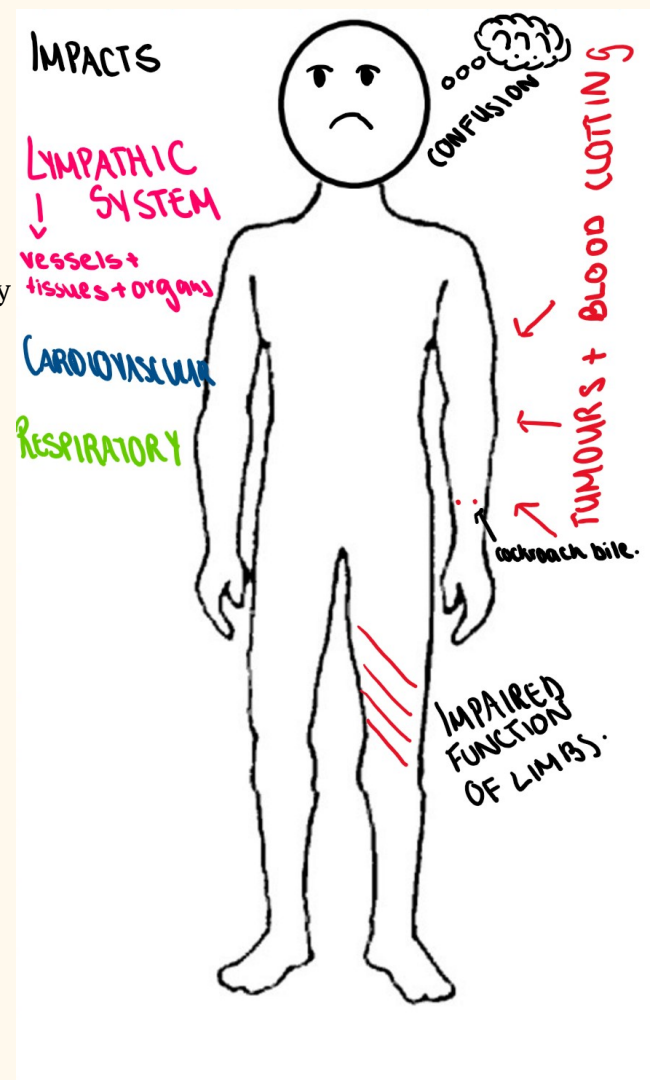 IMPACTS
LYMPATHIC
SYSTEM
vessels +
tissues + organs
y
CARDIOVASCULAR
RESPIRATORY
???
CONFUSION
TUMOURS + BLOOD CLOTTING
cockroach bite.
IMPAIRED
FUNCTION
OF LIMBS.